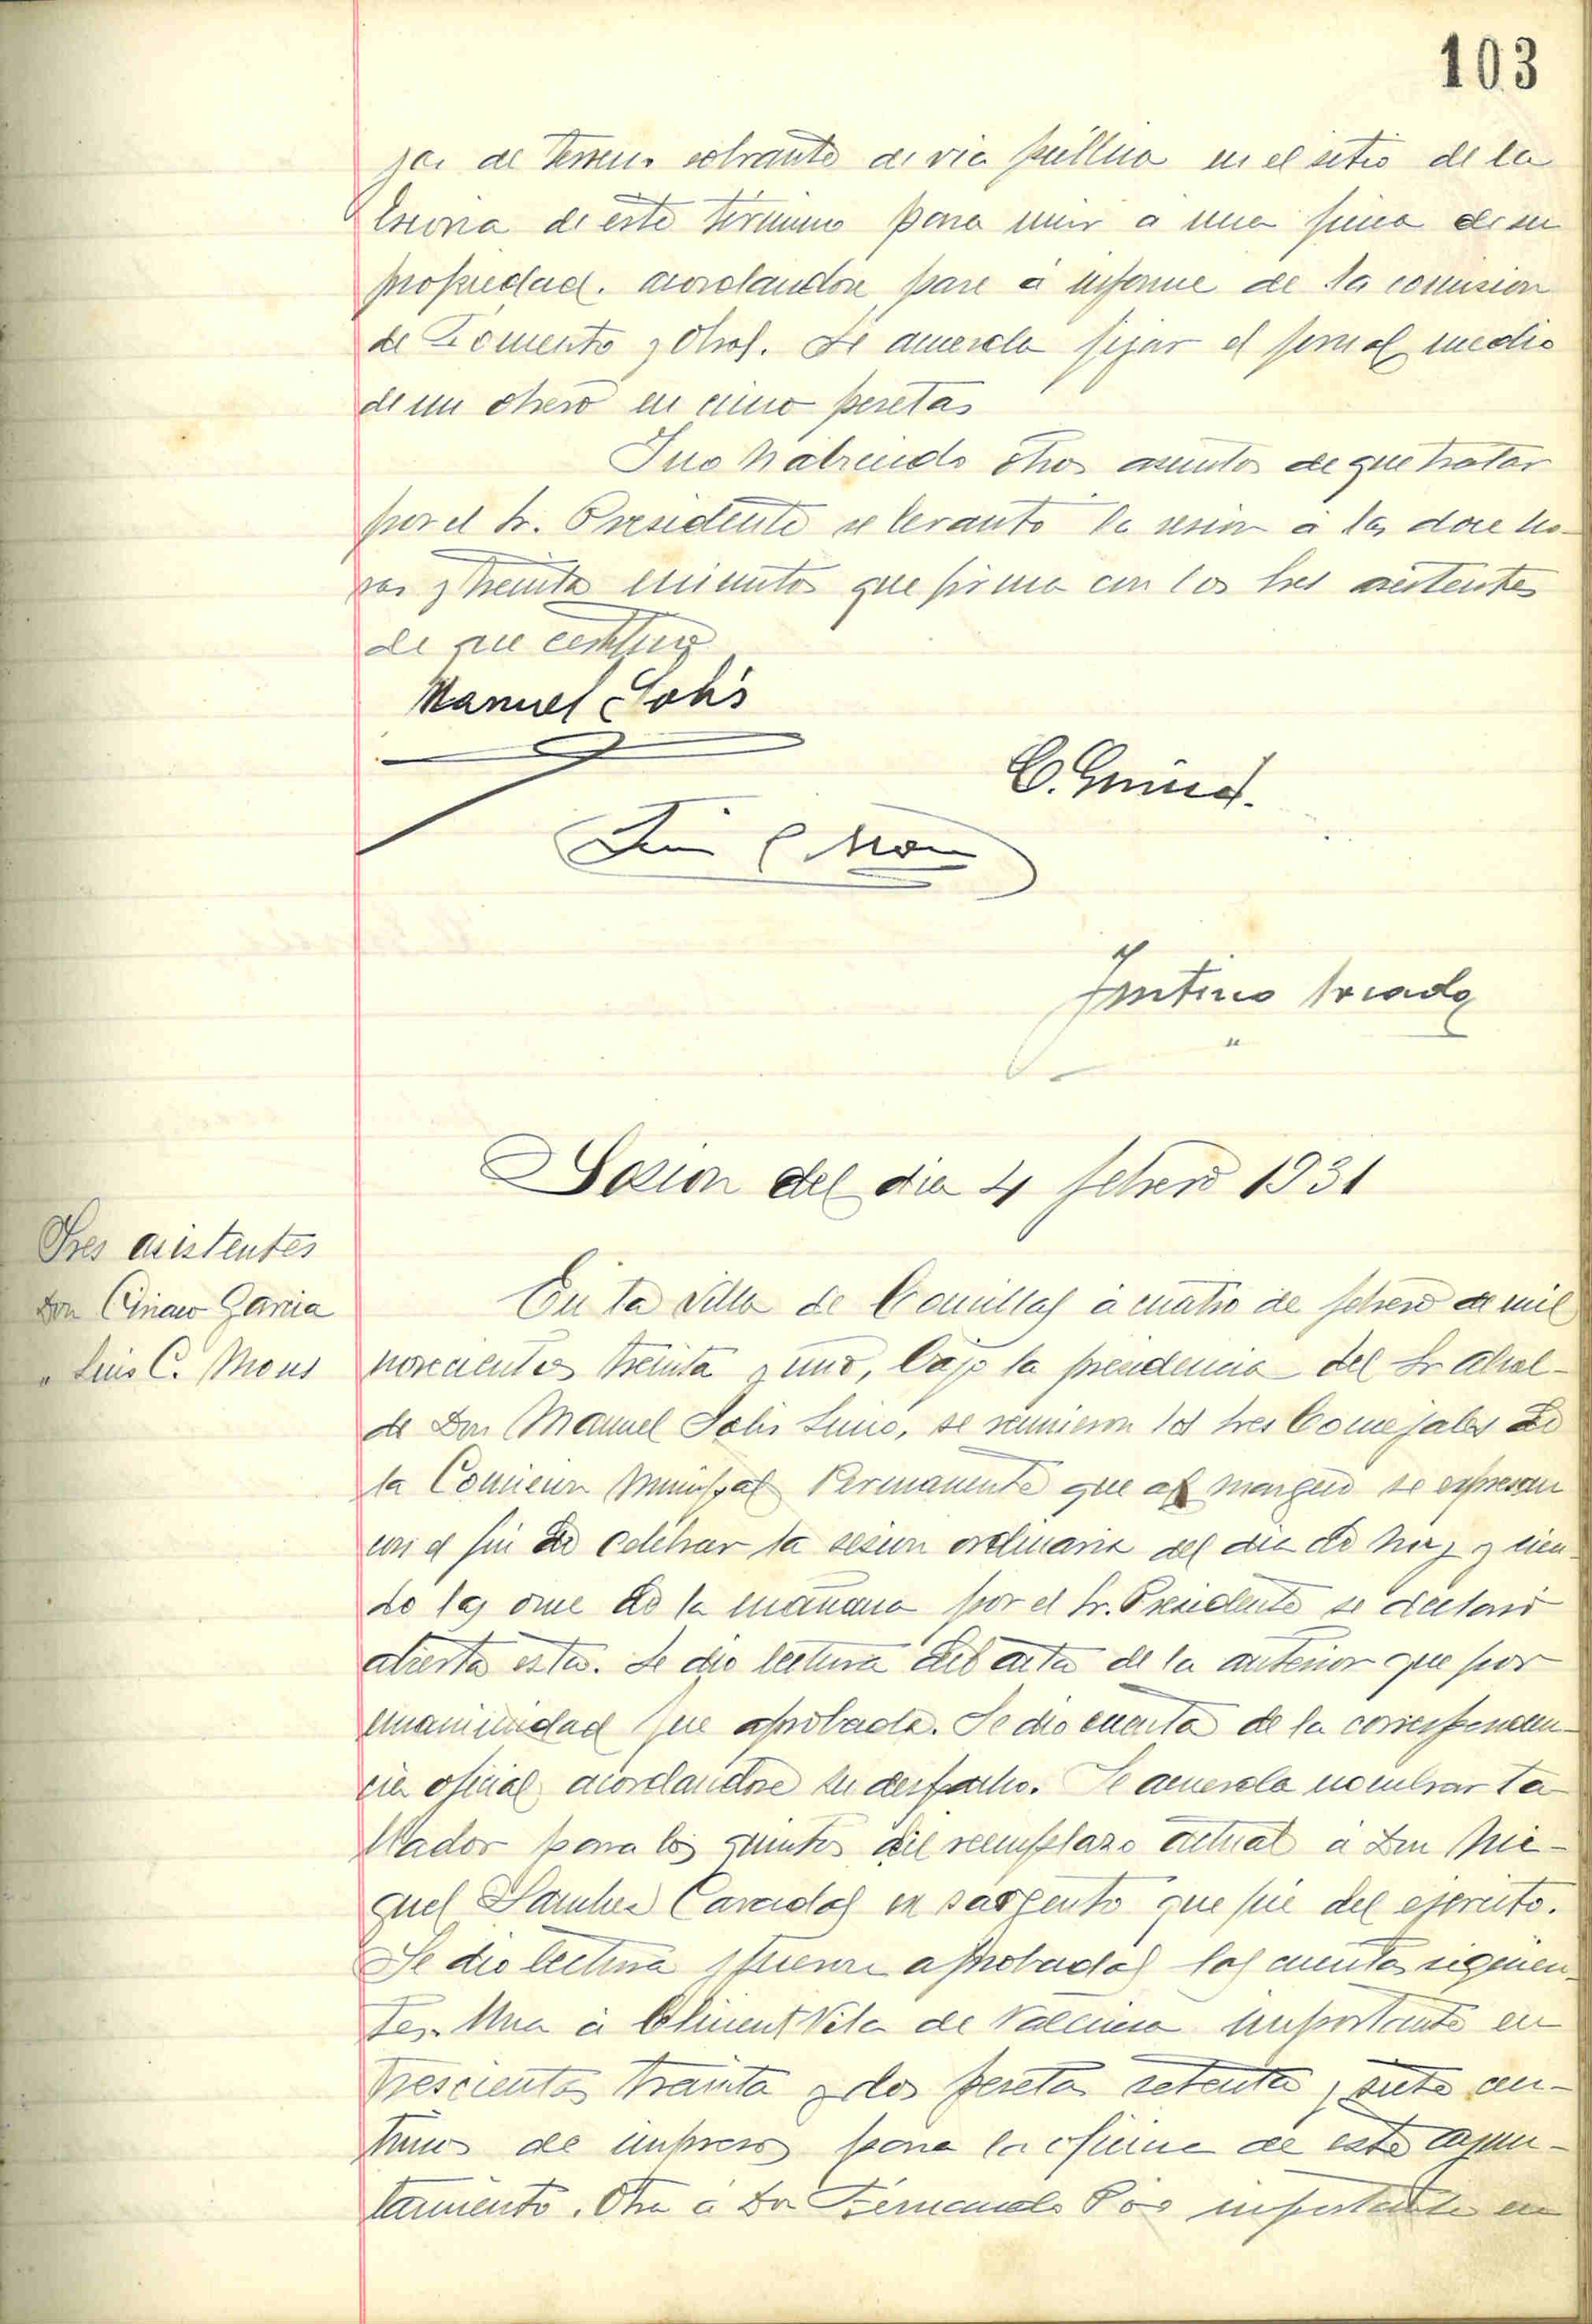 103
de terreno sobrante de via pública en el sitio de la
de este término para unir a una finca de su
propiedad. acordandose pase á informe de la comision
de Fomento y Obras. Se acuerda fijar el jornal medio
de un obrero en cinco pesetas
Y no habiendo otros asuntos de que tratar
por el Sr. Presidente se levantó la sesion a las doce ho-
ras y treinta minutos que firma con los Sres asistentes
de que certifico
Manuel Solis
Sesion del dia 4 febrero 1931
Sres asistentes
Don Ciriaco Garcia
" Luis C. Mons
En la Villa de Comillas á cuatro de febrero de mil
novecientos treinta y uno, bajo la presidencia del Sr Alcal-
de Don Manuel Solis, se reunieron los Sres Concejales de
la Comision Municipal Permanente que al margen se expresan
con el fin de celebrar la sesion ordinaria del dia de hoy y sien-
do las once de la mañana por el Sr. Presidente se declaró
abierta esta. Se dio lectura del acta de la anterior que por
unanimidad fue aprobada. Se dio cuenta de la corresponden-
cia oficial acordandose su despacho. Se acuerda nombrar ta-
llador para los quintos del reemplazo actual á Don Mi-
guel Sanchez sargento que fué del ejercito.
Se dio lectura y fueron aprobadas las cuentas siguien-
tes. Una á Climent Vila de Valencia importante en
trescientas treinta y dos pesetas setenta y siete cen-
timos de impresos para la oficina de este ayun-
tamiento. Otra á Don Fernando importante en